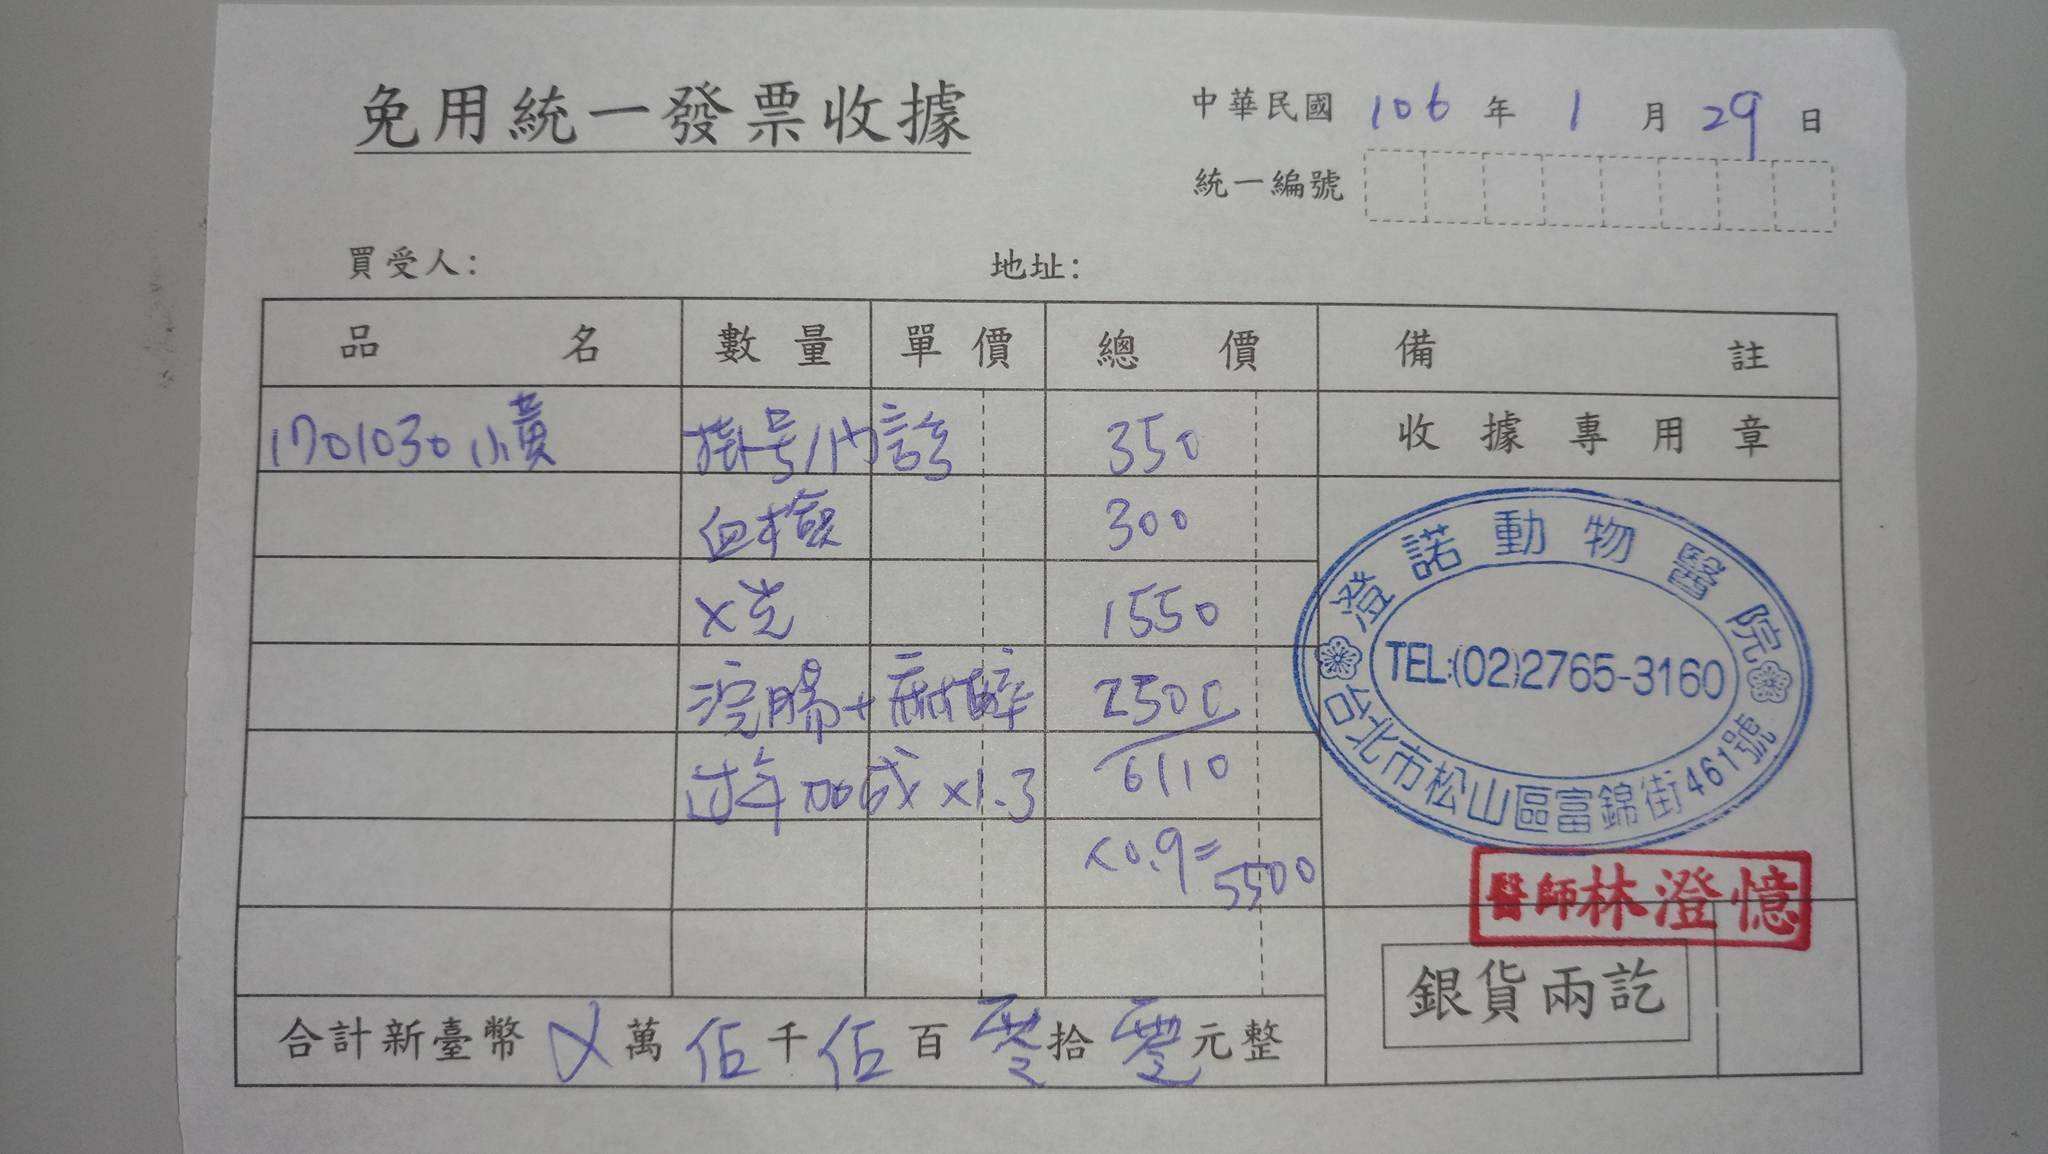 免用統一發票收據
中華民國 106 年 1 月 29 日
統一編號
買受人：
地址：
品名 數量 單價 總價 備註
1701030 小黃 掛号/門診 350 收據專用章
血檢 300
X光 1550
浣腸+麻醉 2500
过年加成 x1.3 6110
x0.9=5500
澄諾動物醫院
TEL:(02)2765-3160
台北市松山區富錦街461號
醫師林澄憶
銀貨兩訖
合計新臺幣 X 萬 伍 千 伍 百 零 拾 零 元整